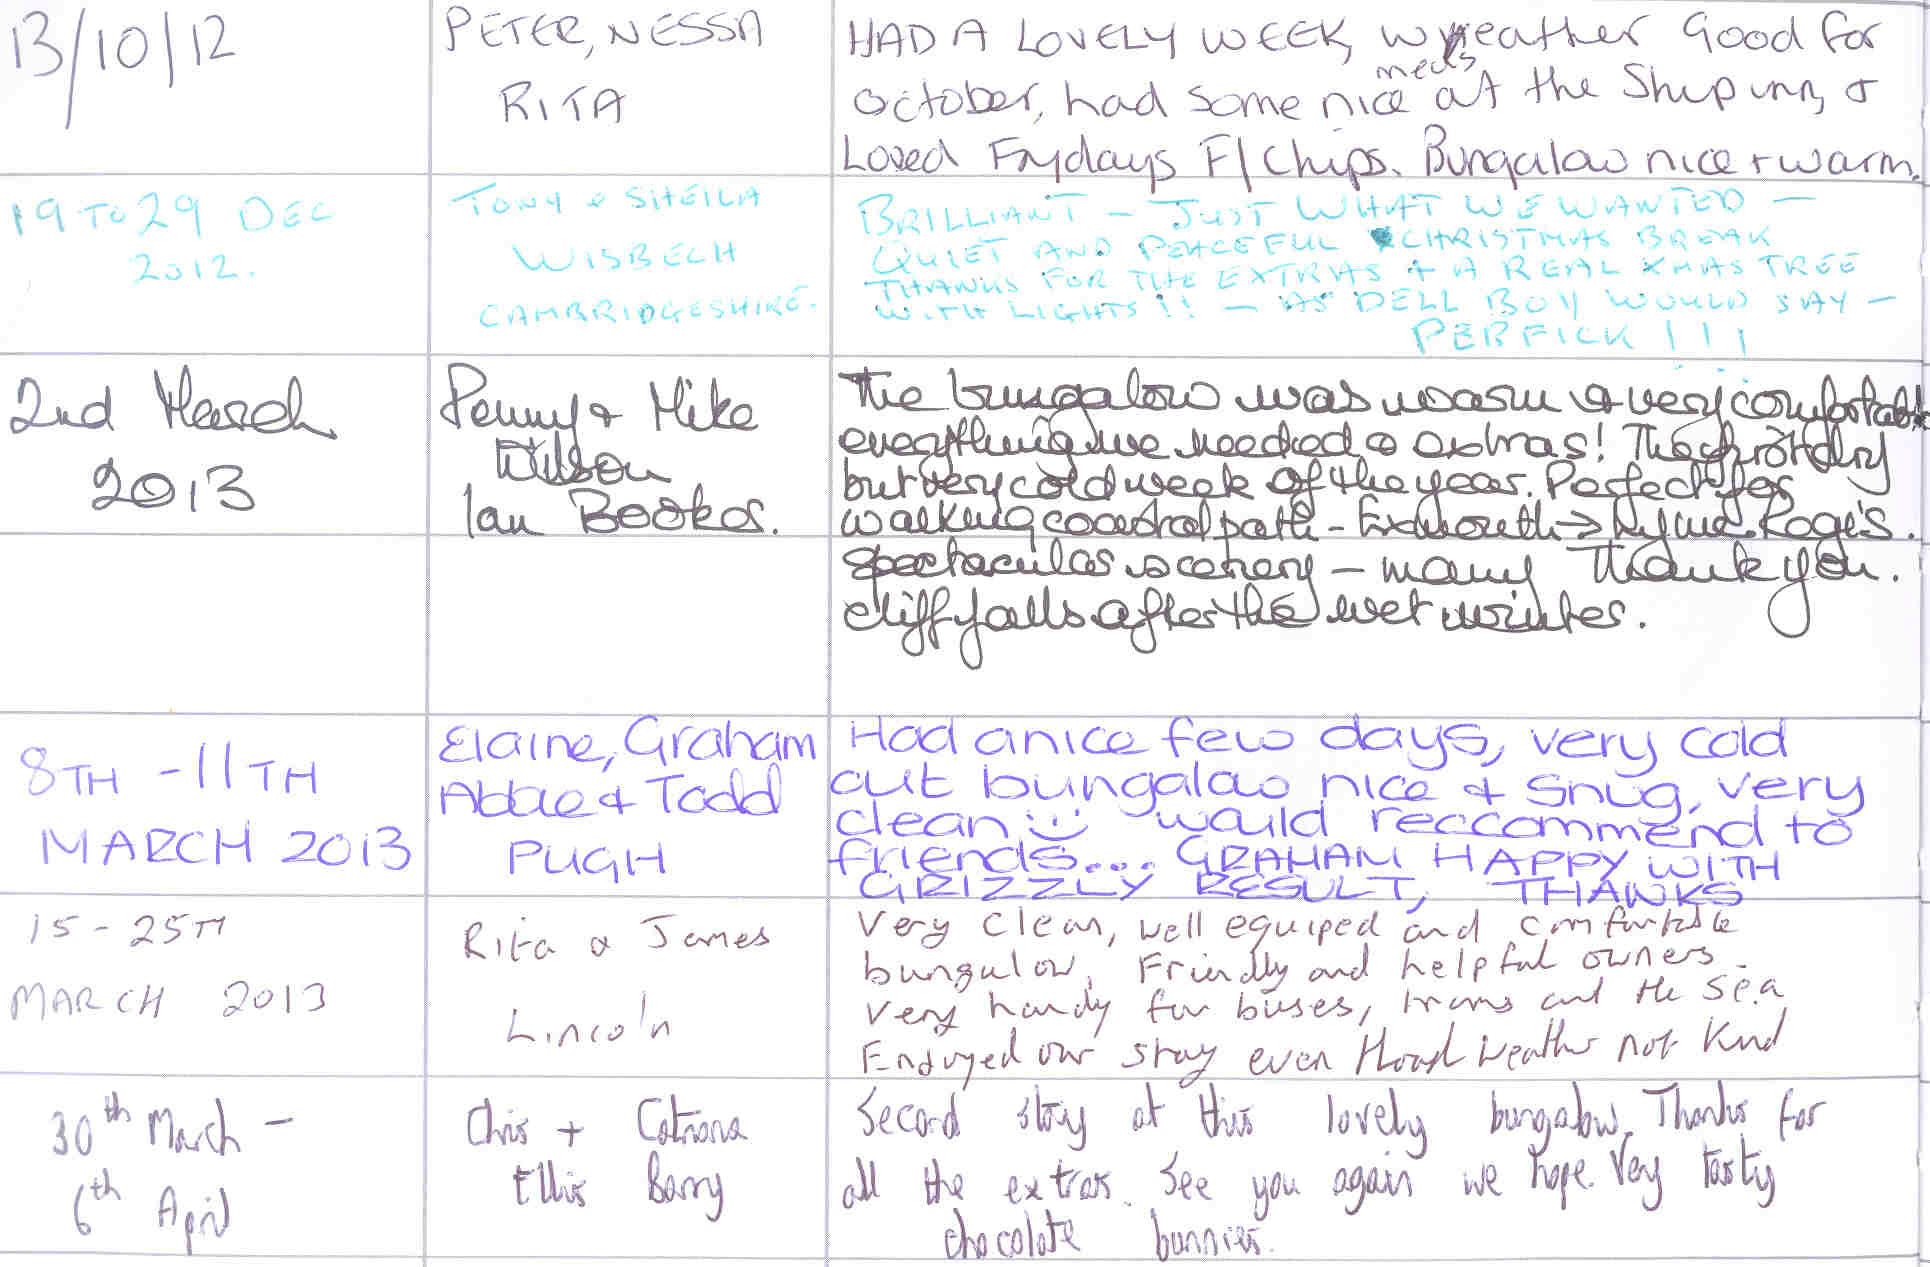 13/10/12
PETER, NESSA
RITA
HAD A LOVELY WEEK, weather Good for
October, had some nice meals at the Ship inn, &
Loved Frydays F/Chips. Bungalow nice + warm.
19 TO 29 DEC
2012.
TONY & SHEILA
WISBECH
CAMBRIDGESHIRE.
BRILLIANT - JUST WHAT WE WANTED -
QUIET AND PEACEFUL CHRISTMAS BREAK
THANKS FOR THE EXTRAS + A REAL XMAS TREE
WITH LIGHTS!! - AS DELL BOY WOULD SAY -
PERFICK!!!
2nd March
2013
Penny & Mike
Wilson
Ian Bookes.
The bungalow was warm & very comfortable
everything we needed & extras! The first dry
but very cold week of the year. Perfect for
walking coastal path - Exmouth → Lyme Regis.
Spectacular scenery - many Thank you.
cliff falls after the wet winter.
8TH - 11TH
MARCH 2013
Elaine, Graham
Abbie & Todd
PUGH
Had a nice few days, very cold
out bungalow nice & snug, very
clean would reccommend to
friends... GRAHAM HAPPY WITH
GRIZZLY RESULT, THANKS
15 - 25TH
MARCH 2013
Rita & James
Lincoln
Very clean, well equiped and comfortable
bungalow. Friendly and helpful owners.
Very handy for buses, trams and the sea
Enjoyed our stay even weather not kind
30th March -
6th April
Chris + Catriona
Ellis Barry
Second stay at this lovely bungalow. Thanks for
all the extras. See you again we hope. Very tasty
chocolate bunnies.